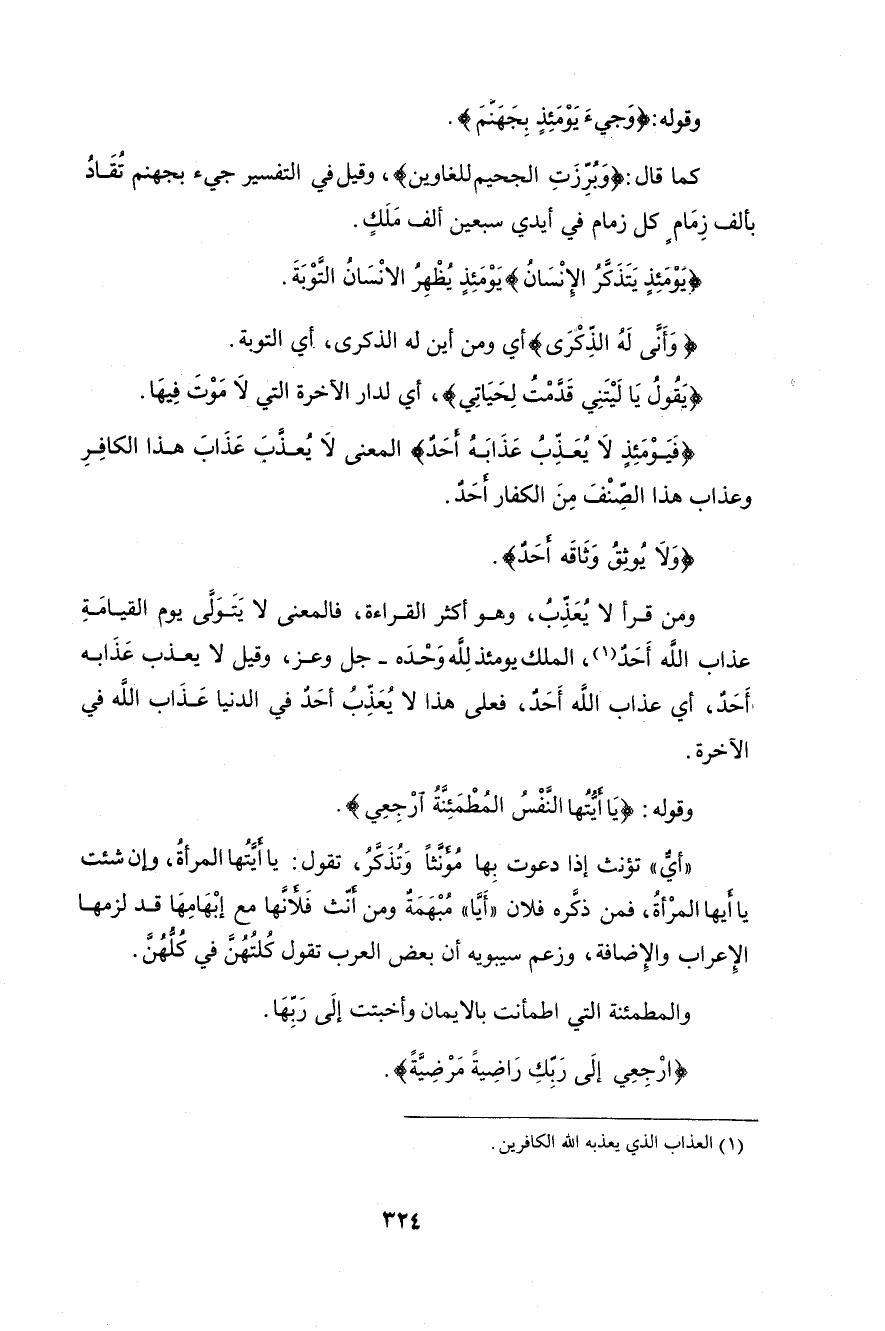 وقوله: ﴿وَجيءَ يَوْمَئِذٍ بِجَهَنَّمَ﴾.
كما قال: ﴿وَبُرِّزَتِ الجحيم للغاوين﴾، وقيل في التفسير جيء بجهنم تُقَـادُ
بألف زِمَامٍ كل زمام في أيدي سبعين ألف مَلَكٍ.
﴿يَوْمَئِذٍ يَتَذَكَّرُ الإِنْسَانُ﴾ يَوْمَئِذٍ يُظْهِرُ الانْسَانُ التَّوْبَةَ.
﴿وَأَنَّى لَهُ الذِّكْرَى﴾ أي ومن أين له الذكرى، أي التوبة.
﴿يَقُولُ يَا لَيْتَنِي قَدَّمْتُ لِحَيَاتِي﴾، أي لدار الآخرة التي لَا مَوْتَ فِيهَا.
﴿فَيَـوْمَئِذٍ لَا يُعَـذِّبُ عَذَابَـهُ أَحَدٌ﴾ المعنى لَا يُعـذَّبَ عَذَابَ هـذا الكافِرِ
وعذاب هذا الصِّنْفَ مِنَ الكفار أَحَدٌ.
﴿وَلَا يُوثِقُ وَثَاقَه أَحَدٌ﴾.
ومن قـرأ لا يُعَذِّبُ، وهـو أكثر القـراءة، فالمعنى لا يَتَـوَلَّى يوم القيـامَـةِ
عذاب اللَّه أَحَدٌ(١)، الملك يومئذ لِلَّه وَحْدَه ـ جل وعـز، وقيل لا يعـذب عَذَابـه
أَحَدٌ، أي عذاب اللَّه أَحَدٌ، فعلى هذا لا يُعَذِّبُ أحَدٌ في الدنيا عَـذَاب اللَّه في
الآخرة.
وقوله: ﴿يَا أَيَّتُها النَّفْسُ المُطْمَئِنَّةُ آرْجِعِي﴾.
«أيٌّ» تؤنث إذا دعوت بها مُؤَنَّثاً وَتُذَكَّرُ، تقول: يا أَيَّتُها المرأةُ، وإن شئت
يا أَيها المرْأةُ، فمن ذكَّره فلان «أيَّا» مُبْهَمَةٌ ومن أَنَّث فَلَأنَّها مع إبْهَامِهَا قـد لزمهـا
الإِعراب والإِضافة، وزعم سيبويه أن بعض العرب تقول كُلتُهُنَّ في كُلُّهُنَّ.
والمطمئنة التي اطمأنت بالايمان وأخبتت إلَى رَبِّهَا.
﴿ارْجِعِي إلَى رَبِّكِ رَاضِيةً مَرْضِيَّةً﴾.
(١) العذاب الذي يعذبه الله الكافرين.
٣٢٤